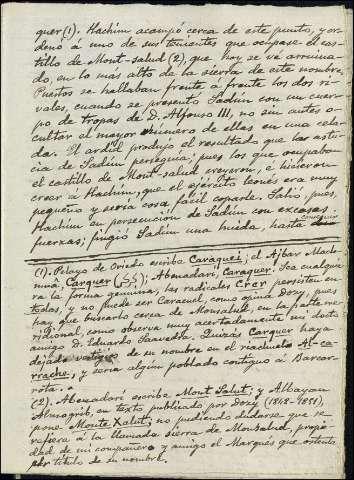 quer (1). Hachim acampó cerca de este punto, y or-
denó á uno de sus tenientes que ocupase el cas-
tillo de Mont-salud (2), que hoy se vé arruina-
do, en lo más alto de la sierra de este nombre.
Puestos se hallaban frente á frente los dos ri-
vales, cuando se presentó Sadun con un cuer-
po de tropas de D. Alfonso III, no sin antes o-
cultar el mayor número de ellas en una cela-
da. El ardid produjo el resultado que la astu-
cia de Sadun perseguia; pues los que ocupaba
el castillo de Mont-salud creyeron, é hicieron
creer á Hachim, que el ejército leonés era muy
pequeño y sería cosa fácil coparle. Salió, pues,
Hachim en persecución de Sadun con escasas
fuerzas; fingió Sadun una huida, hasta conseguir
(1). Pelayo de Oviedo escribe Caraquei; el Ajbar Mach-
muâ, Carquer; Abenadari, Caraquer. Sea cualquie
ra la forma genuina, las radicales Crcr persisten en
todas, y no puede ser Caracuel, como opina Dozy, pues
hay que buscarlo cerca de Monsalud, en la parte me-
ridional, como observa muy acertadamente mi docto
amigo D. Eduardo Saavedra. Quizás Carquer haya
dejado vestigios de su nombre en el riachuelo Al-ca-
rrache, y sería algún poblado contiguo á Barcar-
rota.
(2). Abenadari escribe Mont Salut; y Albayan
Almogrib, en texto publicado por Dozy (1848-1851),
pone Monte Xalut; no pudiendo dudarse que se
refiera á la llamada sierra de Monsalud, propie-
dad de mi compañero y amigo el Marqués que ostenta
por titulo de su nombre.